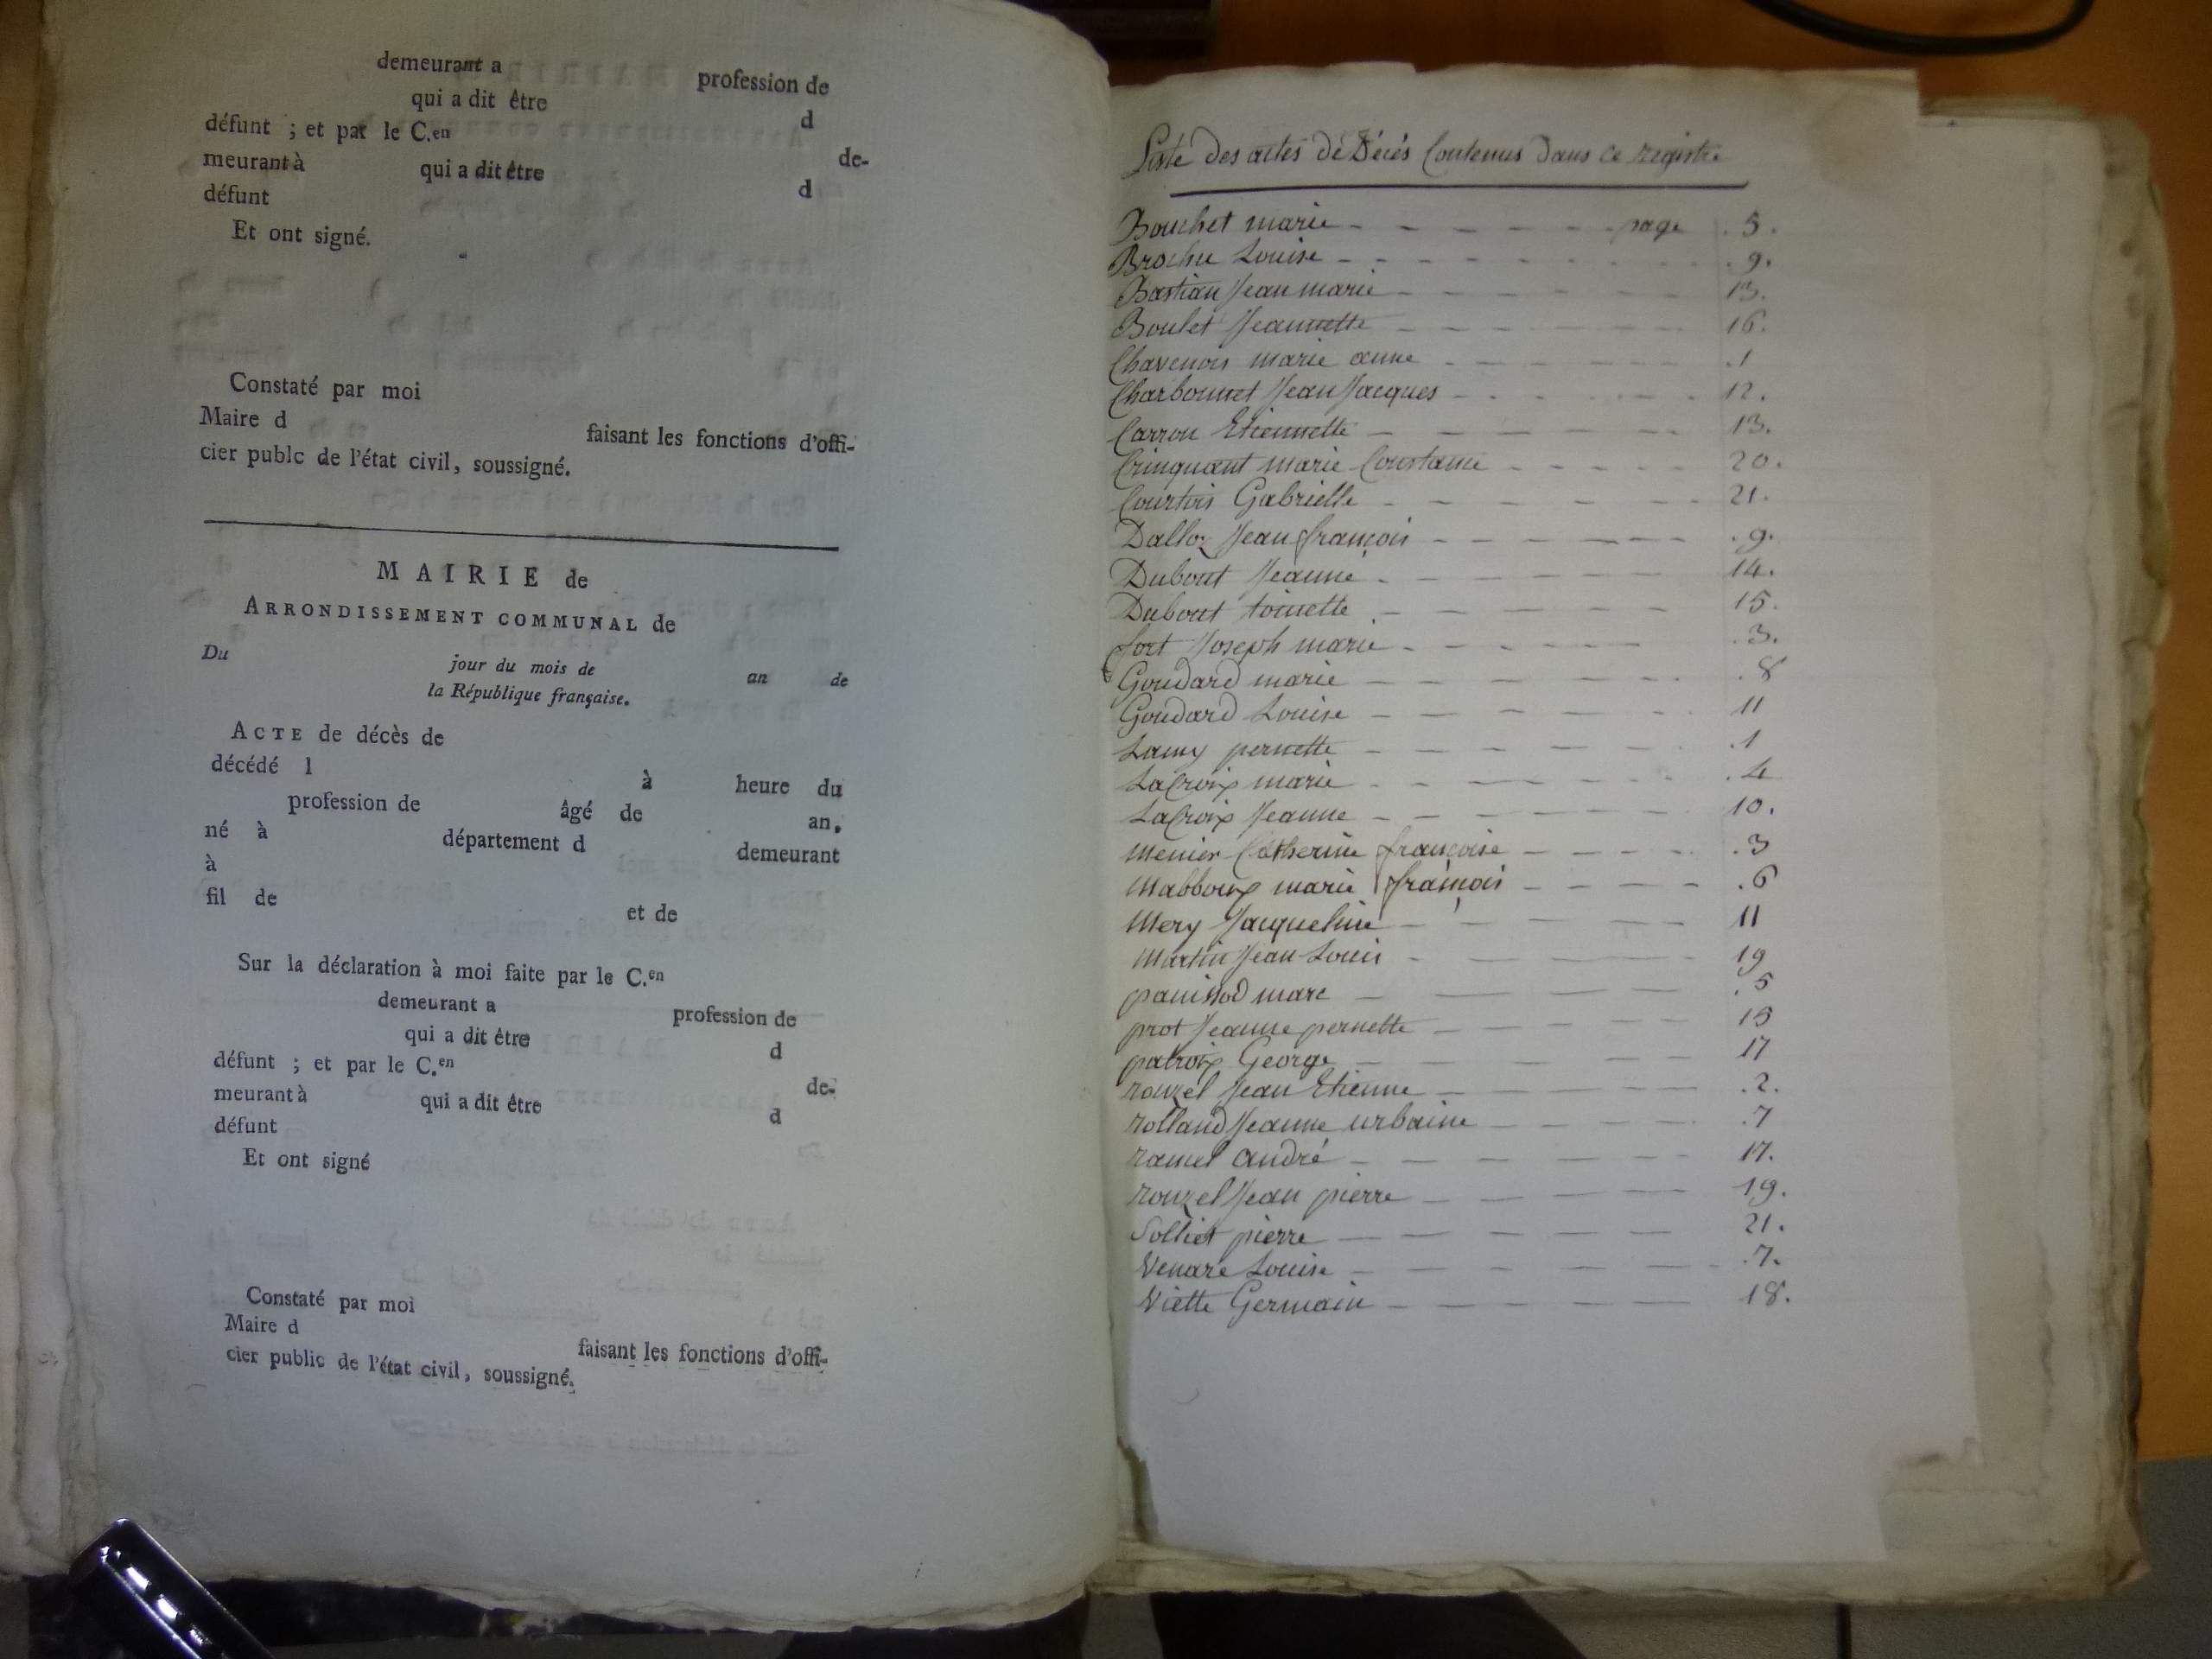 demeurant a profession de
qui a dit être d
défunt ; et par le C.en
meurant à qui a dit être de-
défunt d
Et ont signé.
Constaté par moi
Maire d faisant les fonctions d'offi-
cier publc de l'état civil, soussigné.
MAIRIE de
ARRONDISSEMENT COMMUNAL de
Du jour du mois de an de
la République française.
ACTE de décès de
décédé l à heure du
profession de âgé de an.
né à département d demeurant
à
fil de et de
Sur la déclaration à moi faite par le C.en
demeurant a profession de
qui a dit être d
défunt ; et par le C.en
meurant à qui a dit être de-
défunt d
Et ont signé
Constaté par moi
Maire d faisant les fonctions d'offi-
cier public de l'état civil, soussigné.
Liste des actes de Décés Contenus dans ce registre
Bouchet marie - - - - - - page .5.
Brochu Louise - - - - - - .9.
Bastian Jean marie - - - - - - 13.
Boulet Jeannette - - - - - - 16.
Chavenois marie anne - - - - - .1
Charbonnet Jean Jacques - - - - - 12.
Carron Etiennette - - - - - 13.
Crinquant marie Constance - - - - 20.
Courtois Gabrielle - - - - - 21.
Dalloz Jean françois - - - - - .9.
Dubout Jeanne - - - - - - 14.
Dubout toinette - - - - - - 15.
fort Joseph marie - - - - - .3.
Goudard marie - - - - - - .8
Goudard Louise - - - - - - 11
Lamy pernette - - - - - - .1
LaCroix marie - - - - - - .4
LaCroix Jeanne - - - - - - 10.
Menier Catherine françoise - - - - .3
Mabboux marie françois - - - - .6
Mery Jacqueline - - - - - 11
Martin Jean Louis - - - - - 19
panissod marc - - - - - .5
prot Jeanne pernette - - - - - 15
patroix George - - - - - 17
rouzel Jean Etienne - - - - .2.
rolland Jeanne urbaine - - - - .7
ramel André - - - - - 17.
rouzel Jean pierre - - - - 19.
Solliet pierre - - - - - 21.
Venare Louise - - - - - .7.
Viette Germain - - - - - 18.